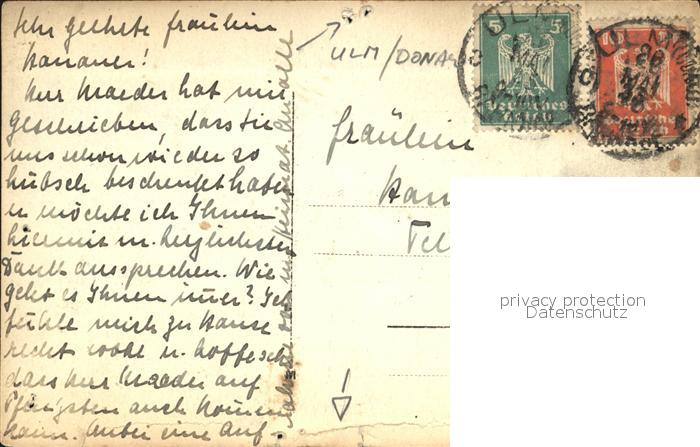 Sehr geehrte Fräulein
Hanauer!
Herr Maeder hat mir
geschrieben, dass Sie
uns schon wieder so
hübsch beschenkt haben
u möchte ich Ihnen
hiermit m. herzlichsten
Dank aussprechen. Wie
geht es Ihnen immer? Ich
fühle mich zu Hause
recht wohl u. hoffe ich
dass Herr Maeder auf
Pfingsten auch kommen
kann. Anbei eine Auf-
ULM/DONAU
Fräulein
Han
Tel
5 5
Deutsches
Reich
ULM
26
MAI
privacy protection
Datenschutz